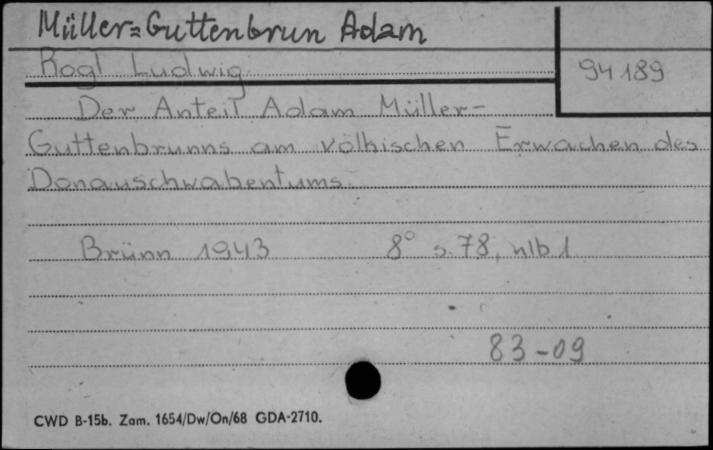 Müller=Guttenbrun Adam
Rogl Ludwig
94189
Der Anteil Adam Müller-
Guttenbrunns am völkischen Erwachen des
Donauschwabentums
Brünn 1943 8° s. 78, nlb 1
83-09
CWD B-15b. Zam. 1654/Dw/On/68 GDA-2710.